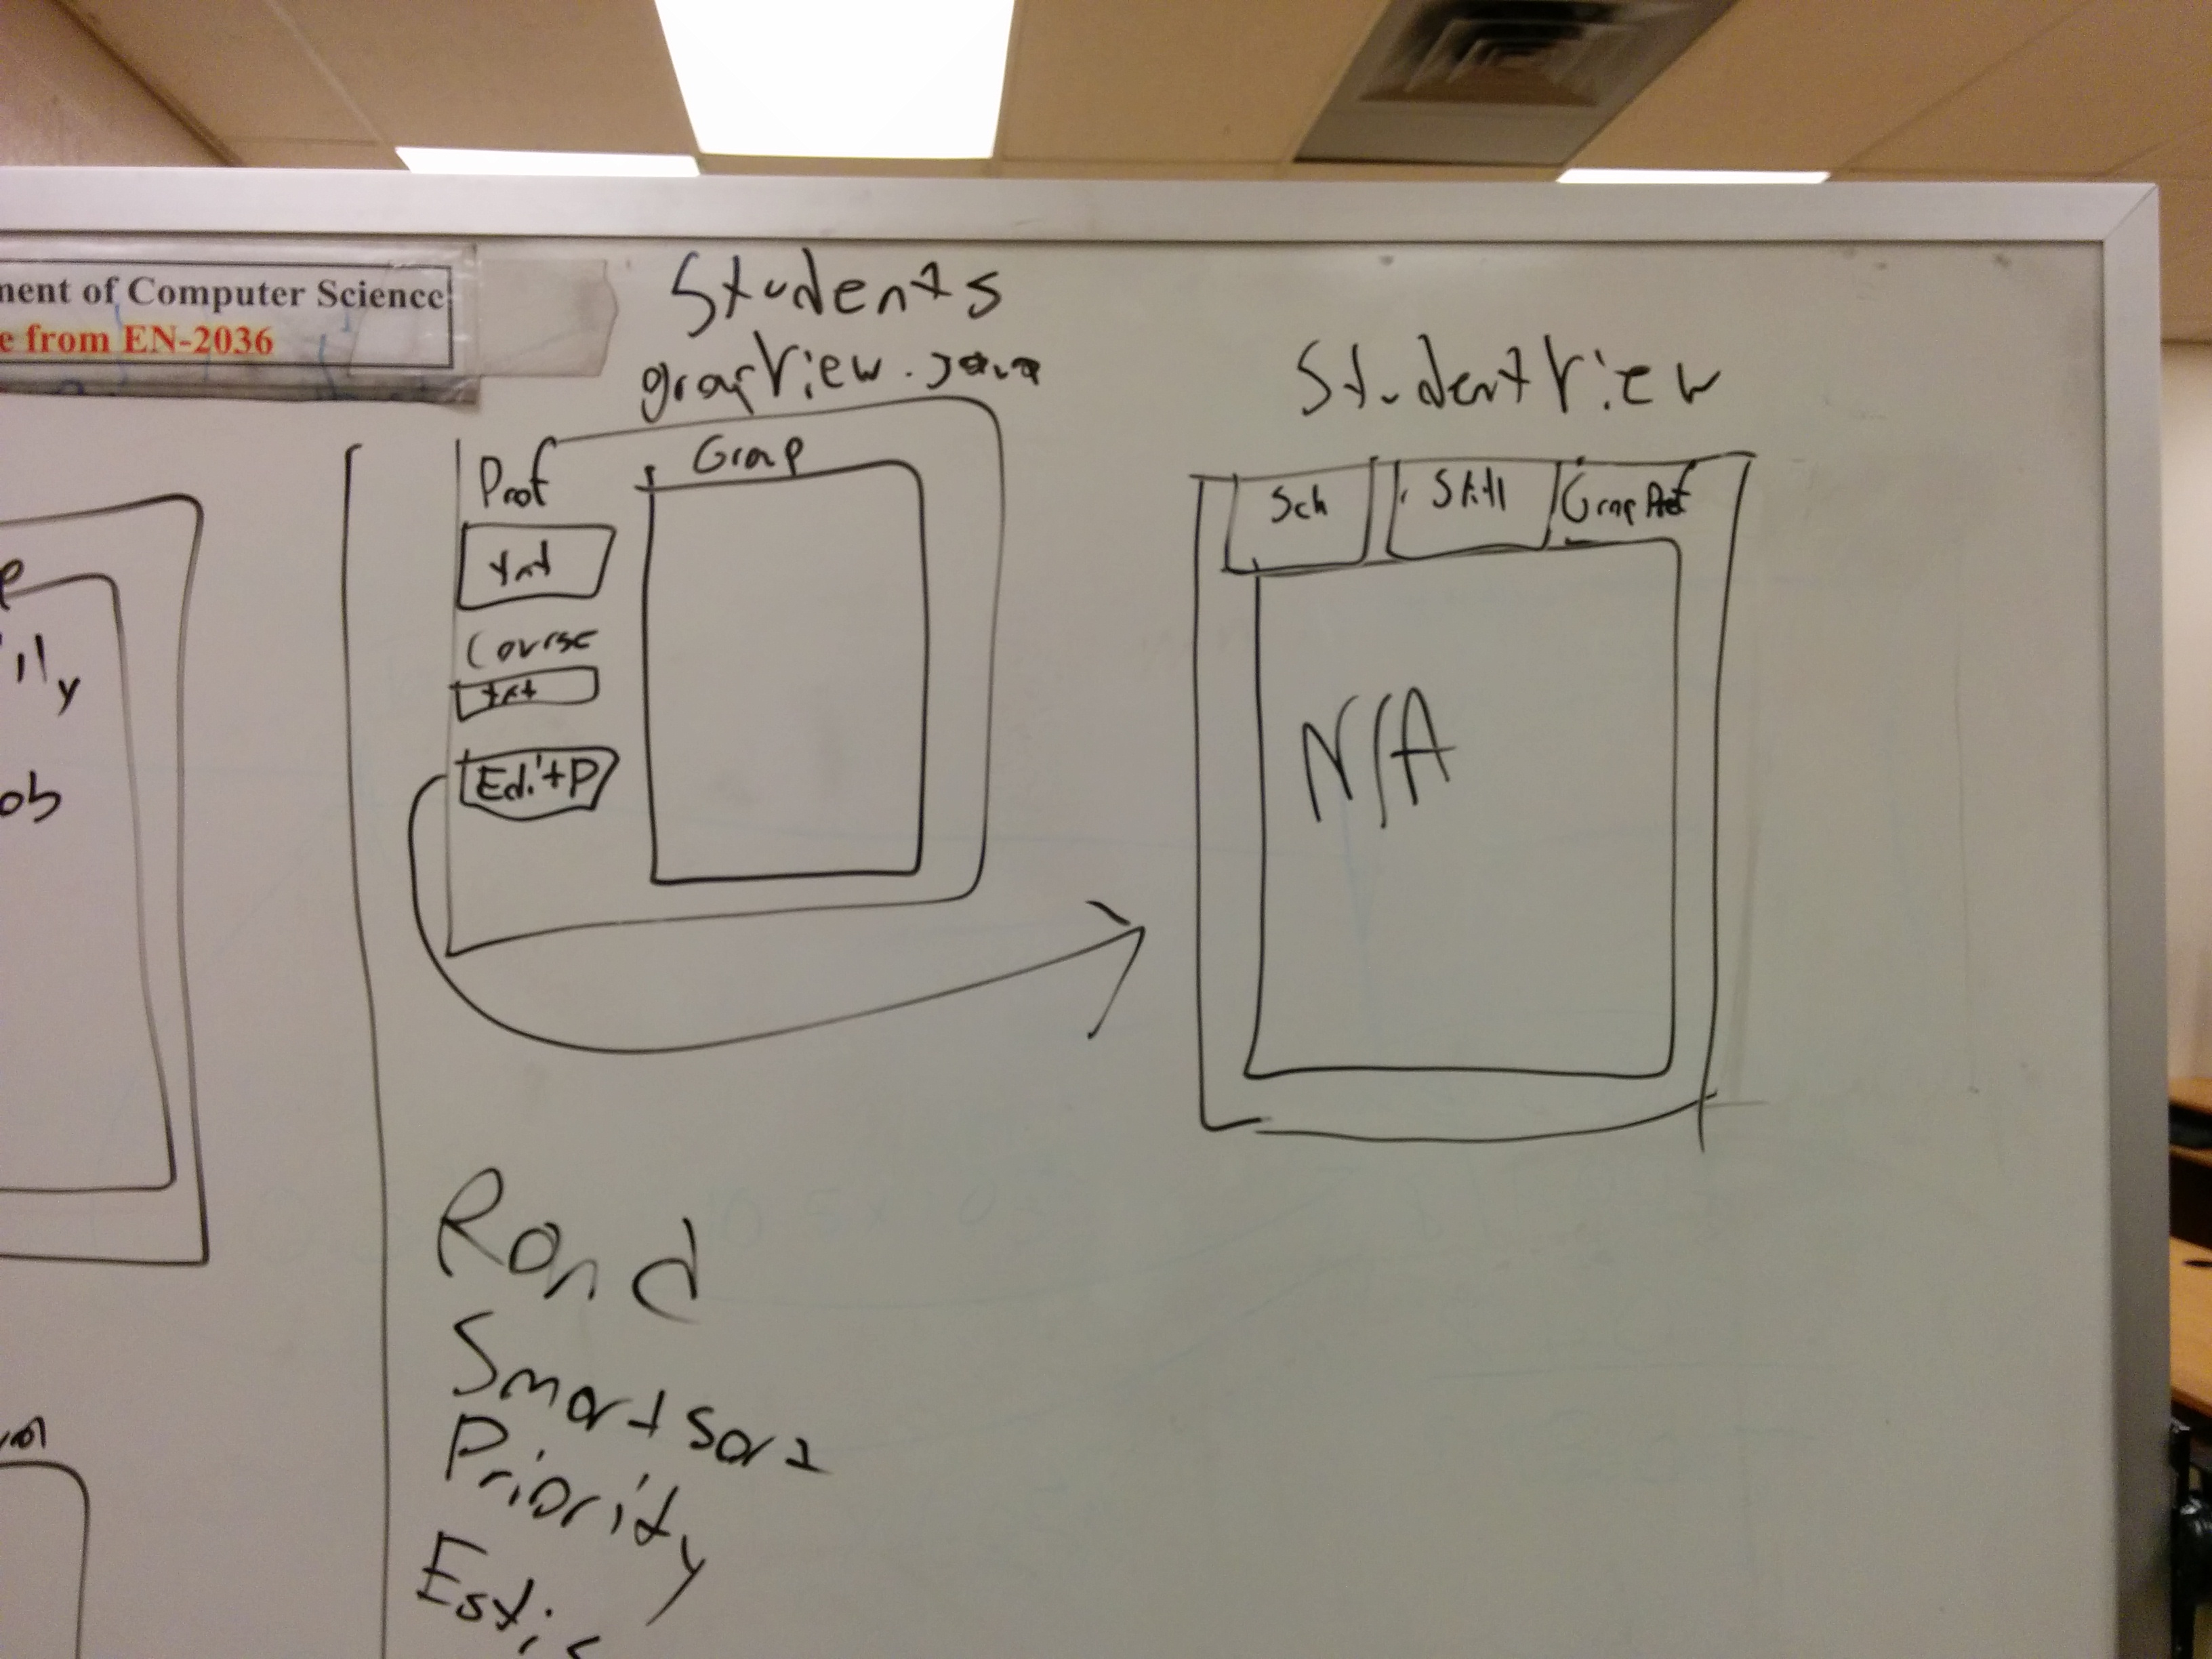 nent of Computer Science
e from EN-2036
Students
grapView.java
Prof
Grap
txt
Course
txt
Edit P
StudentView
Sch
Skill
Grap
N/A
illy
ob
Rand
Smart Sort
Priority
Esti